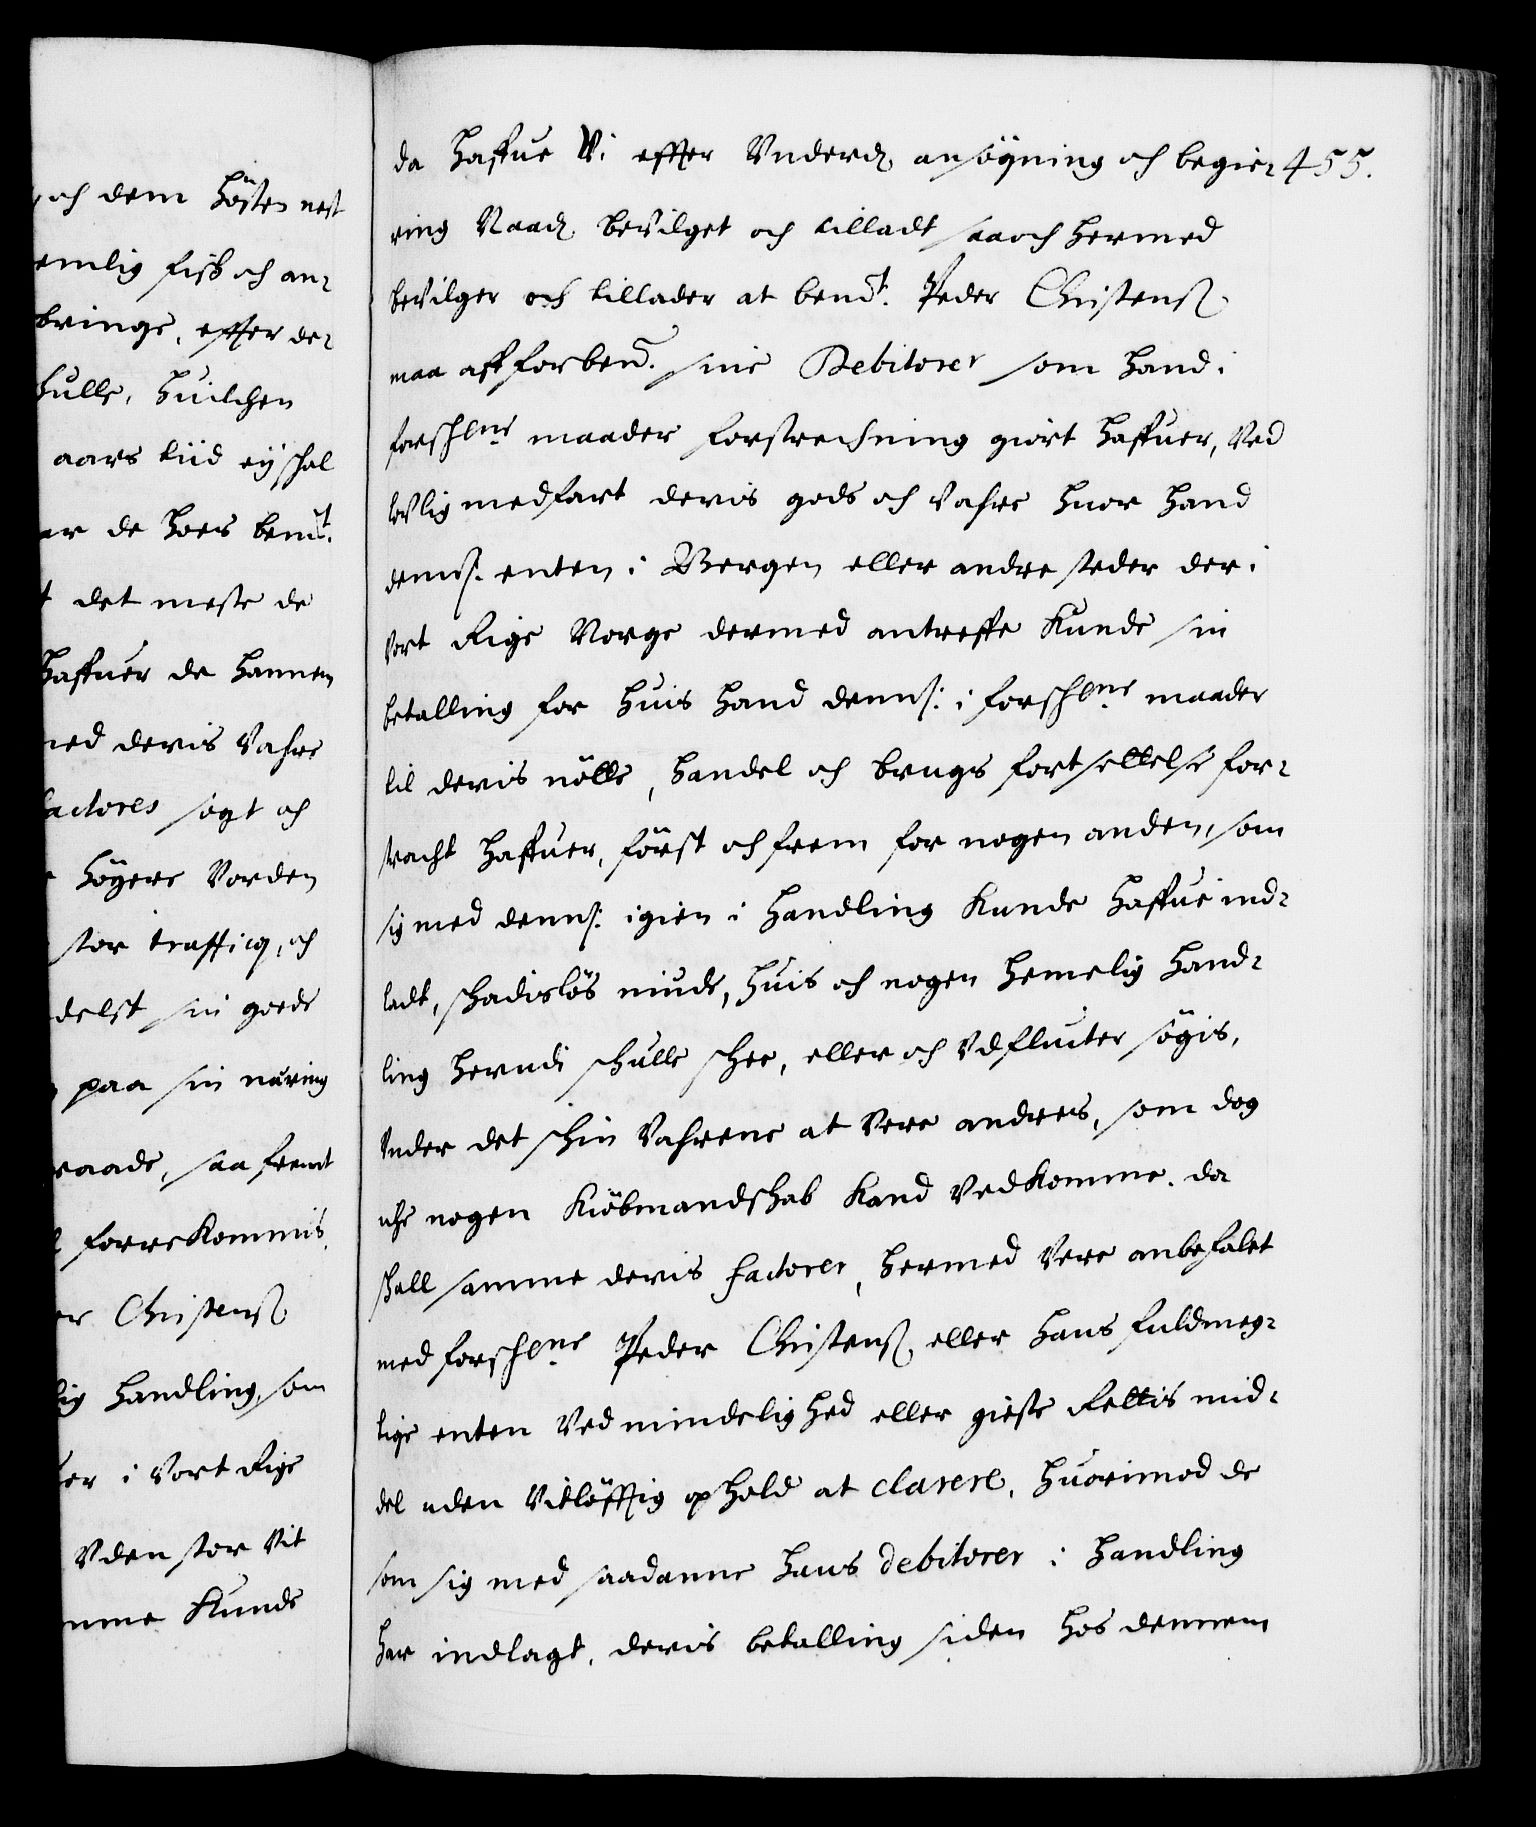 och dem Högten nest
emlig fisk och an-
bringe, effter de-
skulle, huilchen
aars tiid ey skal
ar de hoes bemt.
t det meste de
haffuer de hannem
med deris Vahre
factores søgt och
høyere Vorden
stor trafficq, och
delst sin goede
paa sin næring
raade, saa fremt
forrekommis
er Christenß
lig Handling, som
er i Vort Rige
Vden stor Vit
mme Kunde
455.
da haffue Wi effter Vnderd. ansögning och begie-
ring Naad. beVilget och tilladt saa och hermed
beVilger och tillader at bemt. Peder Christenß
maa aff forbem. sine Debitorer som hand i
forschne maader forstrechning giört haffuer, Ved
lovlig medfart deris gods och Vahre huor hand
demß. enten i Bergen eller andre steder der i
Vort Rige Norge dermed antreffe kunde sin
betalling for huis hand demß. i forschne maader
til deris nötte, handel och brugs fortsettelse for-
stracht haffuer, först och frem for nogen anden, som
sig med demß. igien i handling kunde haffue ind-
ladt, schadislös niude, huis och nogen hemelig Hand-
ling herudi schulle schee, eller och Vdfluiter sögis,
Vnder det schin Vahrene at Vere andres, som dog
iche nogen Kiöbmandschab kand Vedkomme. da
shall samme deris factorer, hermed Vere anbefalet
med forschne Peder Christenß eller hans fuldmeg-
tige enten Ved mindelighed eller gieste Rettis mid-
del uden Vitlöfftig ophold at clarere, huorimod de
som sig med saadanne hans debitorer i handling
har indlagt, deris betalling siden hos dennem